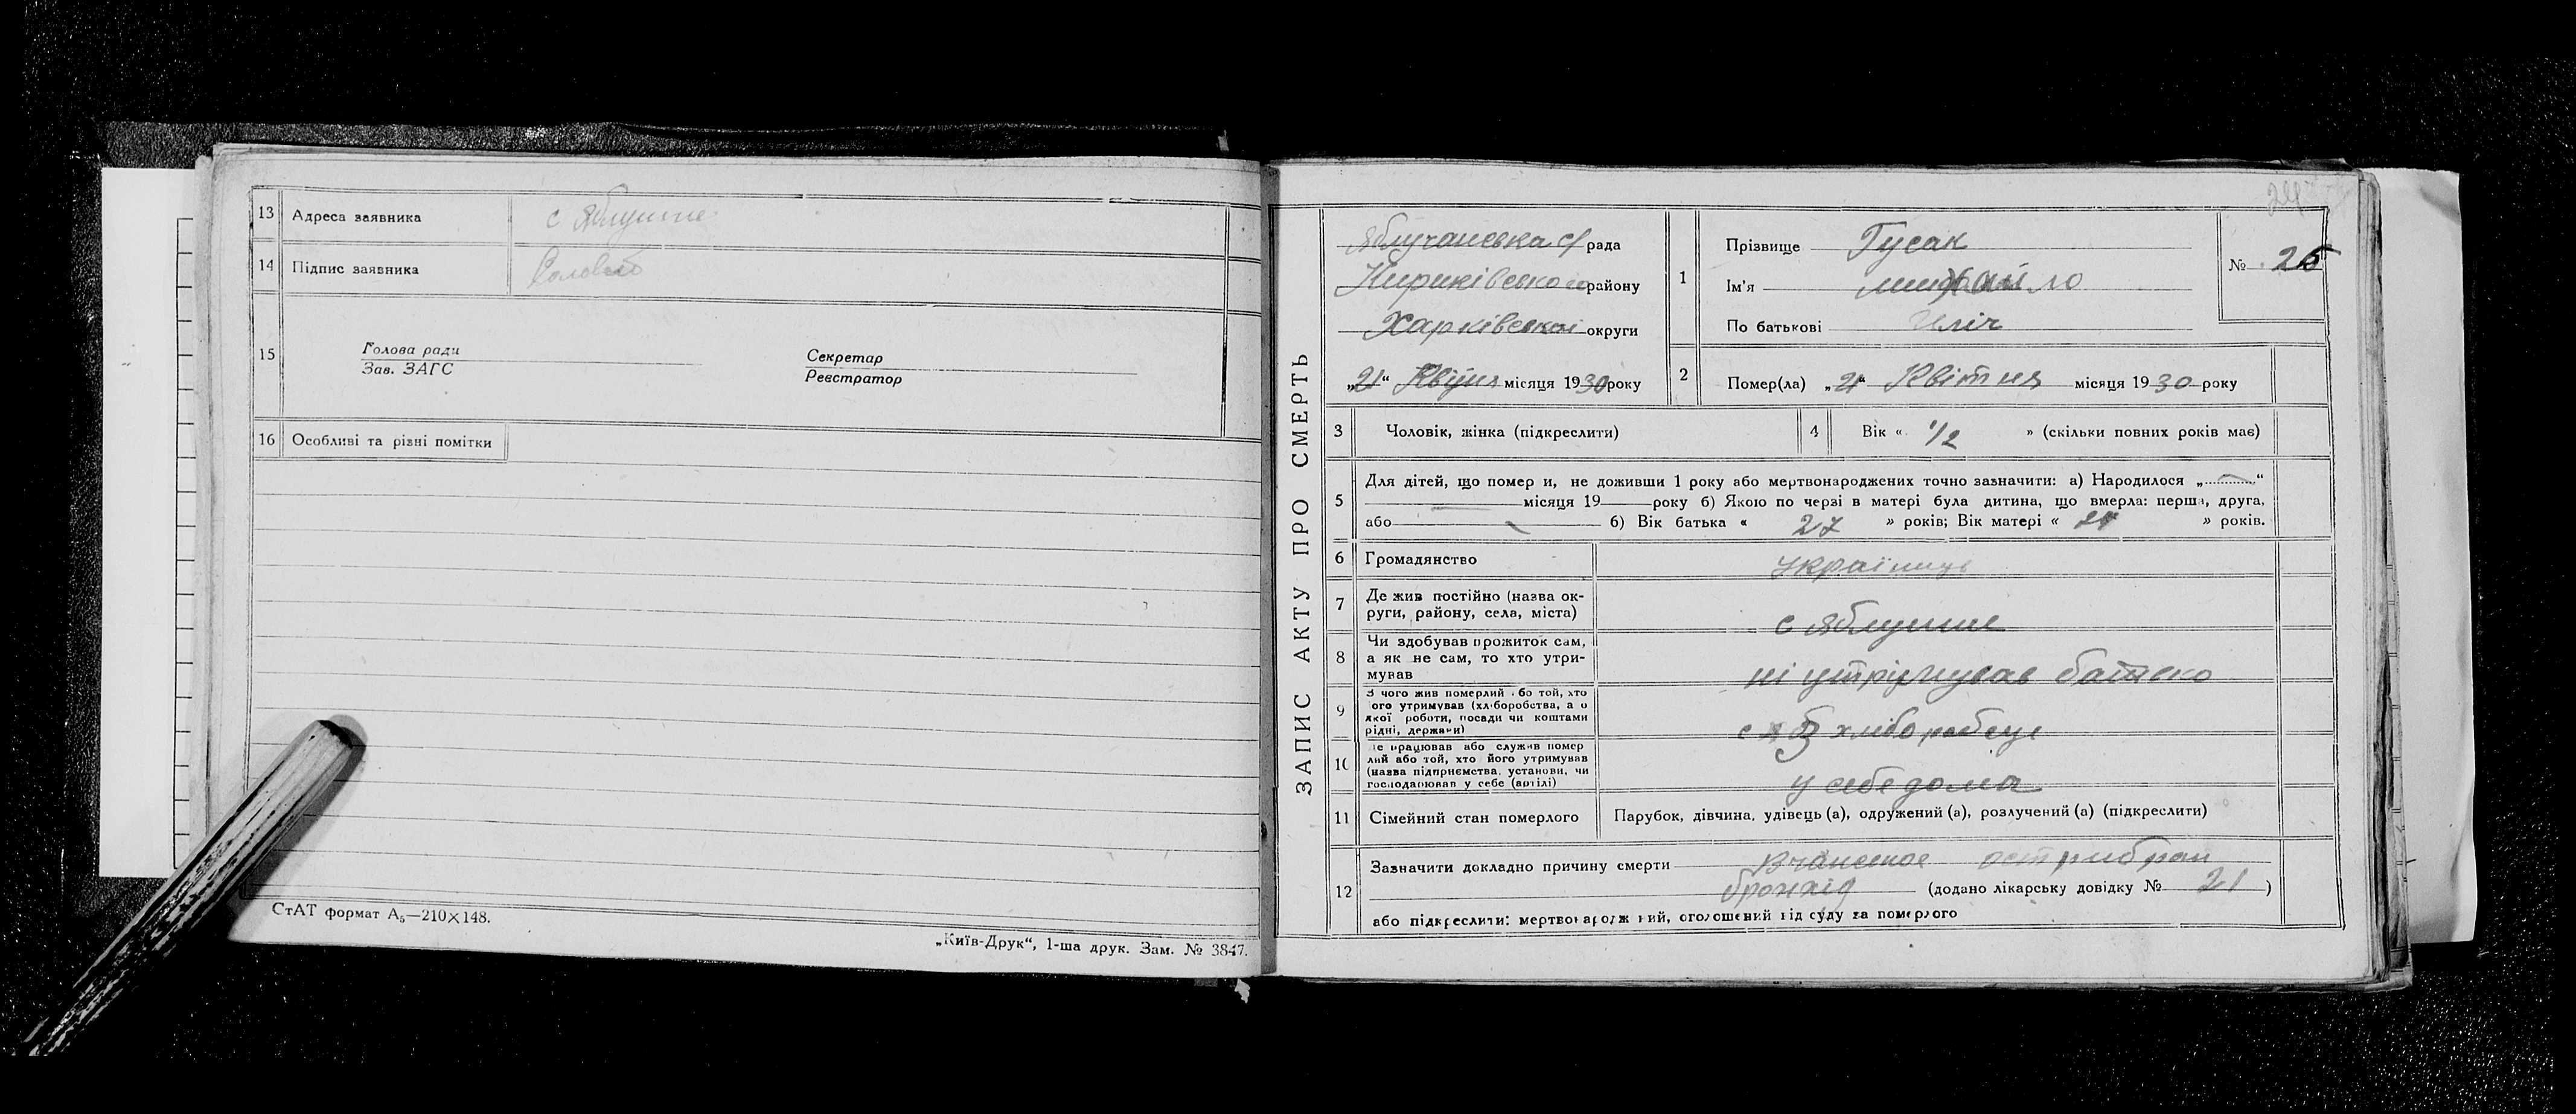 13 Адреса заявника с Яблучне
14 Підпис заявника Соловей
15 Голова ради
Зав. ЗАГС
Секретар
Реєстратор
16 Особливі та різні помітки
СтАТ формат А₅—210×148.
„Київ-Друк“, 1-ша друк. Зам. № 3847.
24
ЗАПИС АКТУ ПРО СМЕРТЬ
Яблучанська с/рада
Кириківського району
Харківської округи
„21“ Квітня місяця 1930 року
1 Прізвище Гусак
Ім'я михайло
По батькові Ілліч
№ 25
2 Помер(ла) „21“ Квітня місяця 1930 року
3 Чоловік, жінка (підкреслити)
4 Вік « 1/2 » (скільки повних років має)
5 Для дітей, що помер и, не доживши 1 року або мертвонароджених точно зазначити: а) Народилося „ “
місяця 19 року б) Якою по черзі в матері була дитина, що вмерла: перша, друга,
або б) Вік батька « 27 » років; Вік матері « » років.
6 Громадянство Україниць
7 Де жив постійно (назва ок-
руги, району, села, міста) с Яблучне
8 Чи здобував прожиток сам,
а як не сам, то хто утри-
мував ні утрімував батько
9 З чого жив померлий або той, хто
ого утримував (хліборобства, а о
якої роботи, посади чи коштами
рідні, держави) з хліборобец
10 е працював або служив помер
лий або той, хто його утримував
(назва підприємства, установи, чи
господарював у себе (артілі) у себе дома
11 Сімейний стан померлого Парубок, дівчина, удівець (а), одружений (а), розлучений (а) (підкреслити)
12 Зазначити докладно причину смерти
бронхід (додано лікарську довідку № 21)
або підкреслити: мертвонароджений, оголошений від суду за померлого